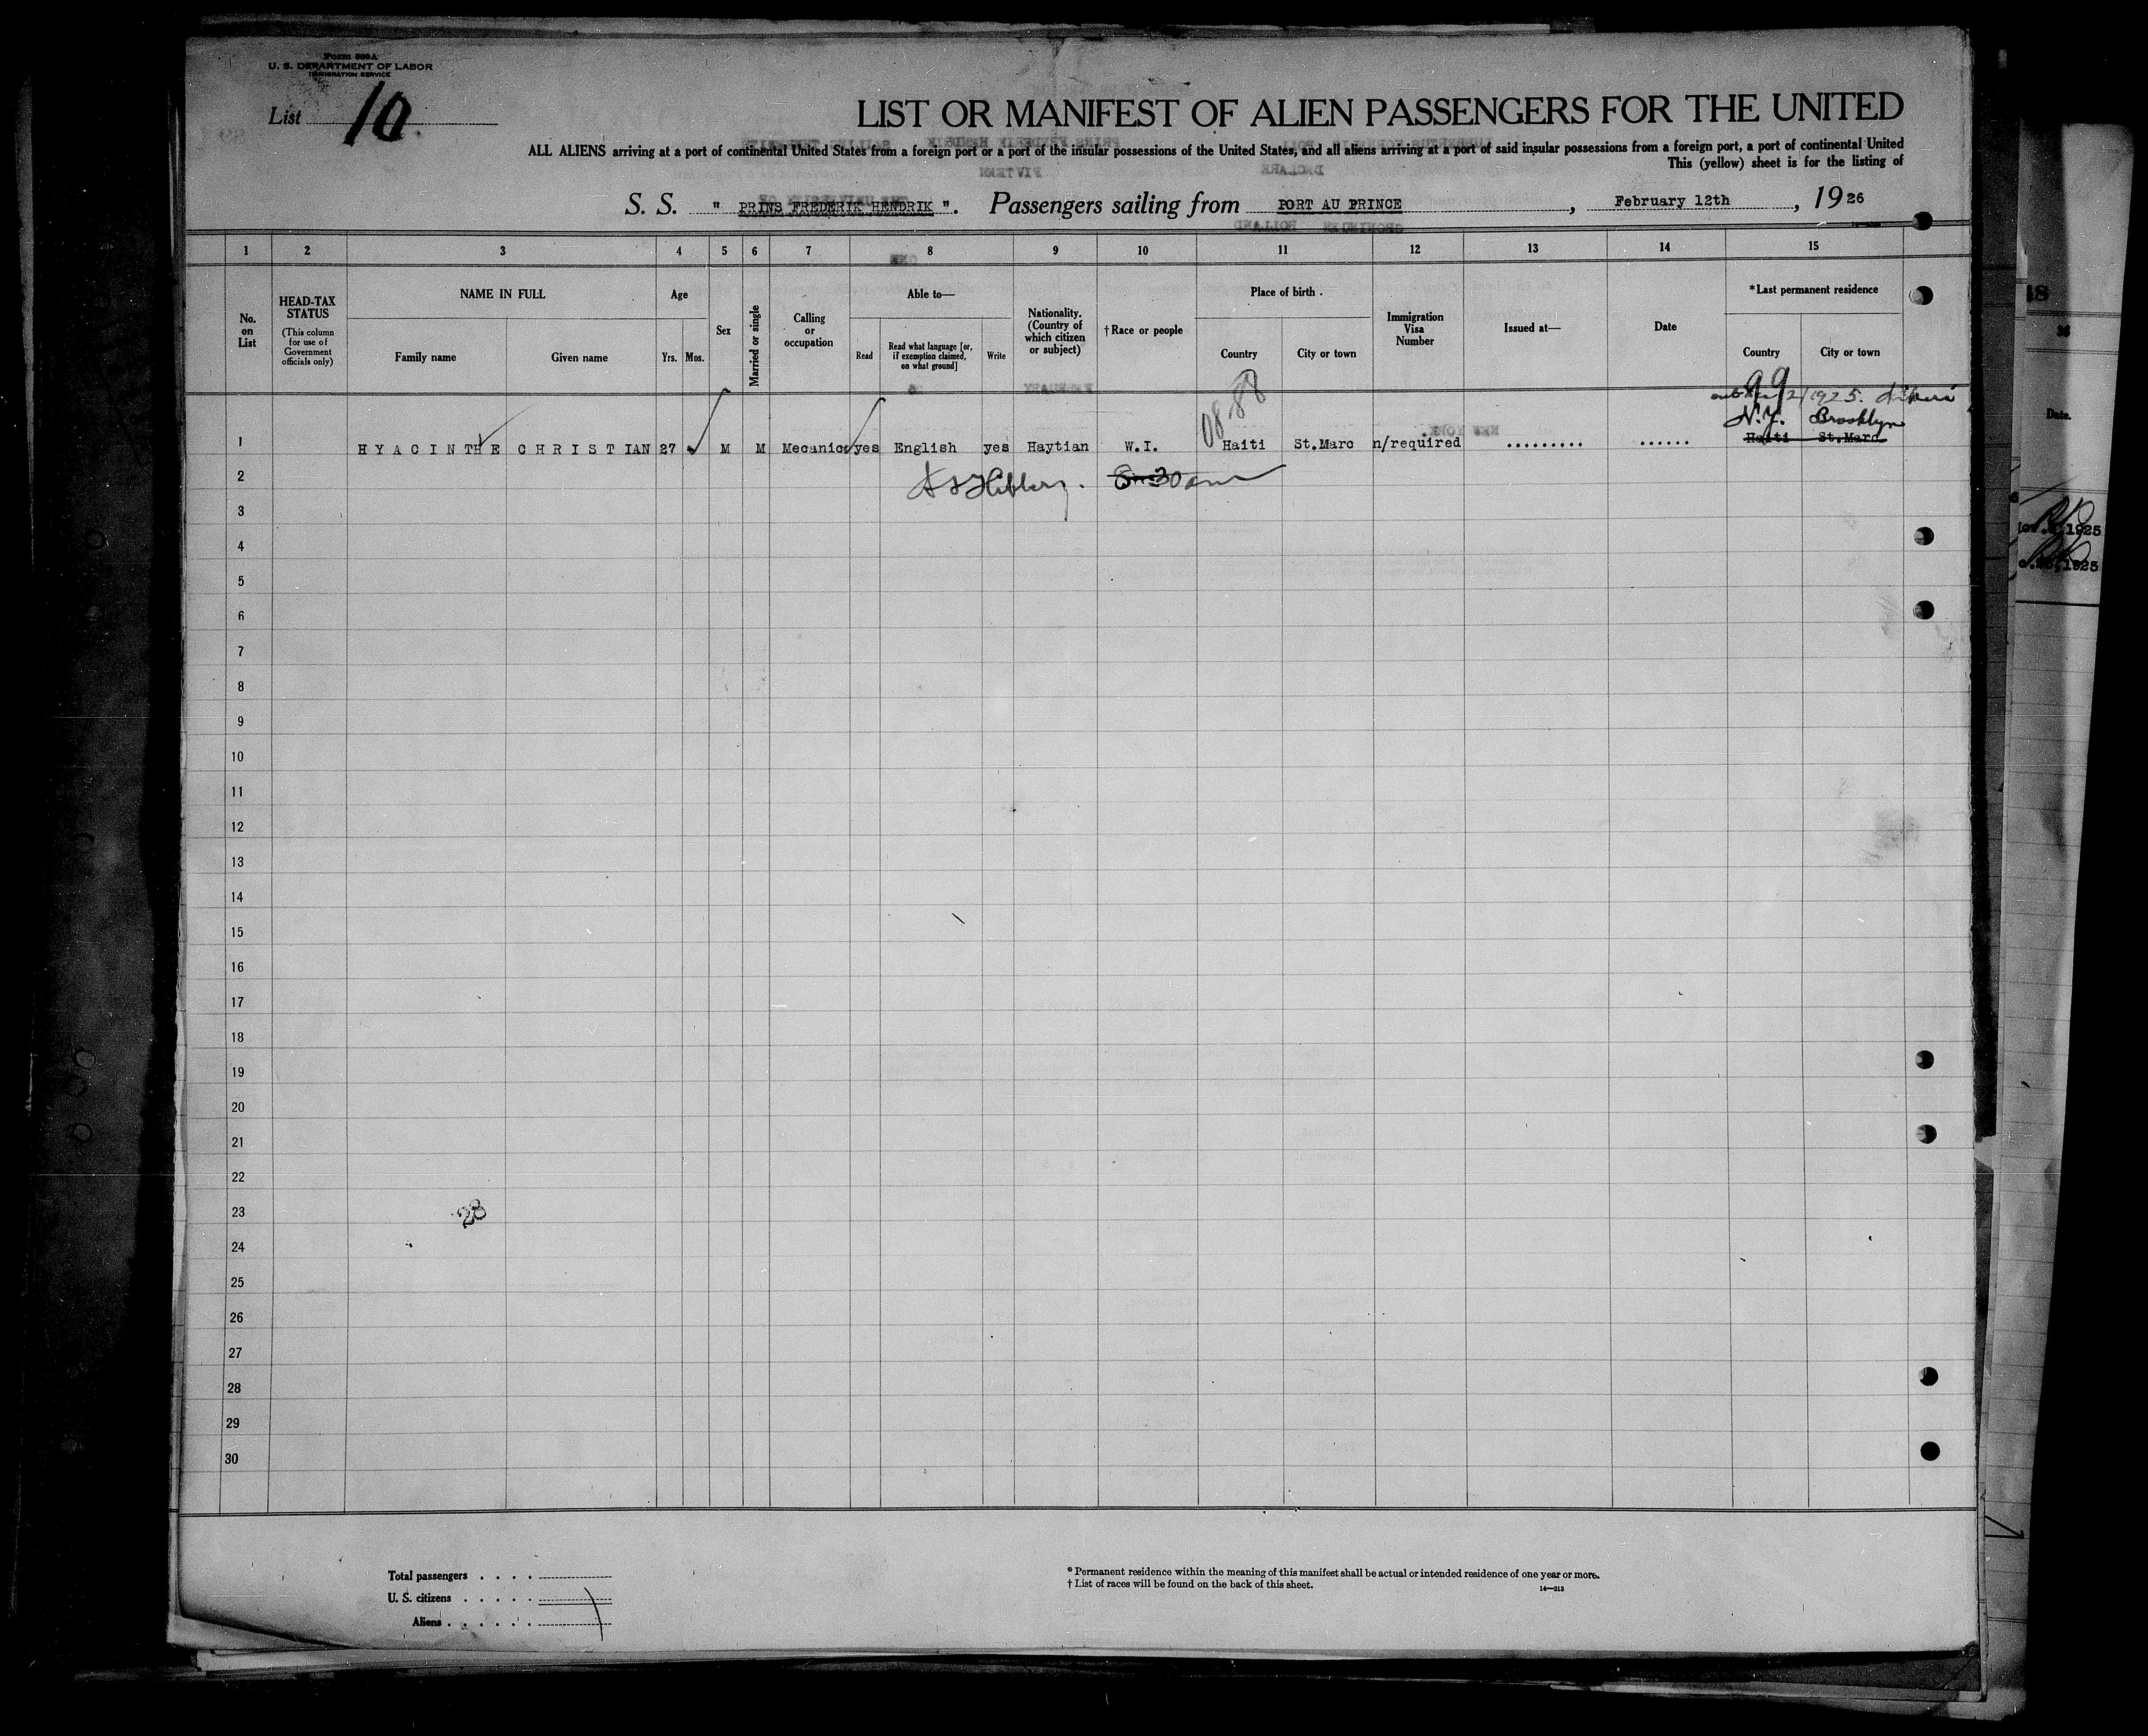 Form 500 A
U. S. DEPARTMENT OF LABOR
IMMIGRATION SERVICE
List 10
LIST OR MANIFEST OF ALIEN PASSENGERS FOR THE UNITED
ALL ALIENS arriving at a port of continental United States from a foreign port or a port of the insular possessions of the United States, and all aliens arriving at a port of said insular possessions from a foreign port, a port of continental United
This (yellow) sheet is for the listing of
S. S. " PRINS FREDERIK HENDRIK ". Passengers sailing from PORT AU PRINCE, February 12th, 1926
1 2 3 4 5 6 7 8 9 10 11 12 13 14 15
No. on List
HEAD-TAX STATUS (This column for use of Government officials only)
NAME IN FULL
Family name Given name
Age
Yrs. Mos.
Sex
Married or single
Calling or occupation
Able to—
Read
Read what language [or, if exemption claimed, on what ground]
Write
Nationality. (Country of which citizen or subject)
† Race or people
Place of birth.
Country City or town
Immigration Visa Number
Issued at—
Date
*Last permanent residence
Country City or town
99
1925.
88
N.Y. Brooklyn
1 HYACINTHE CHRISTIAN 27 M M Mecanic yes English yes Haytian W.I. Haiti St.Marc n/required ......... ...... Haiti St.Marc
2
3
4
5
6
7
8
9
10
11
12
13
14
15
16
17
18
19
20
21
22
23
24
25
26
27
28
29
30
Total passengers
U. S. citizens
Aliens
* Permanent residence within the meaning of this manifest shall be actual or intended residence of one year or more.
† List of races will be found on the back of this sheet.
14—213
Date.
1925
1925